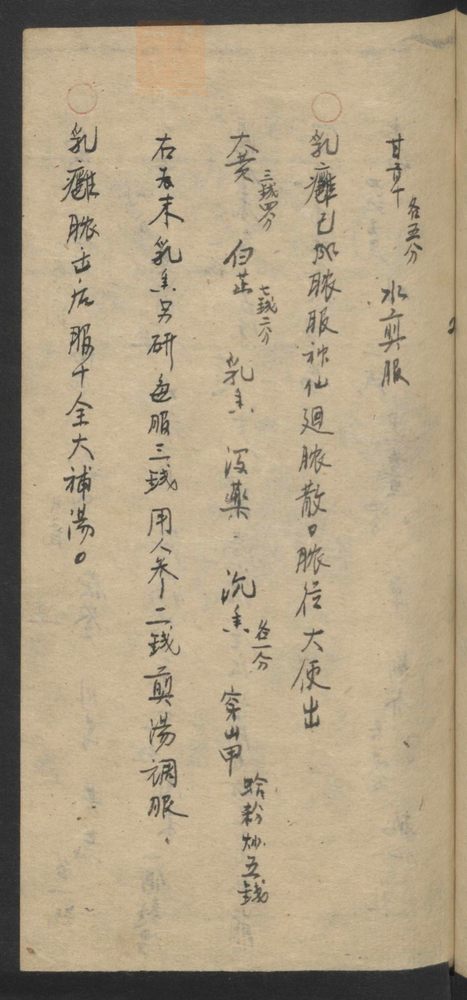 甘草各五分 水煎服
乳癰已成膿服神仙廻膿散。膿從大便出
大黄三錢四分 白芷七錢二分 乳香 沒藥 沉香各一分 穿山甲蛤粉炒五錢
右為末乳香另研每服三錢用人参二錢煎湯調服
乳癰膿出后服十全大補湯。